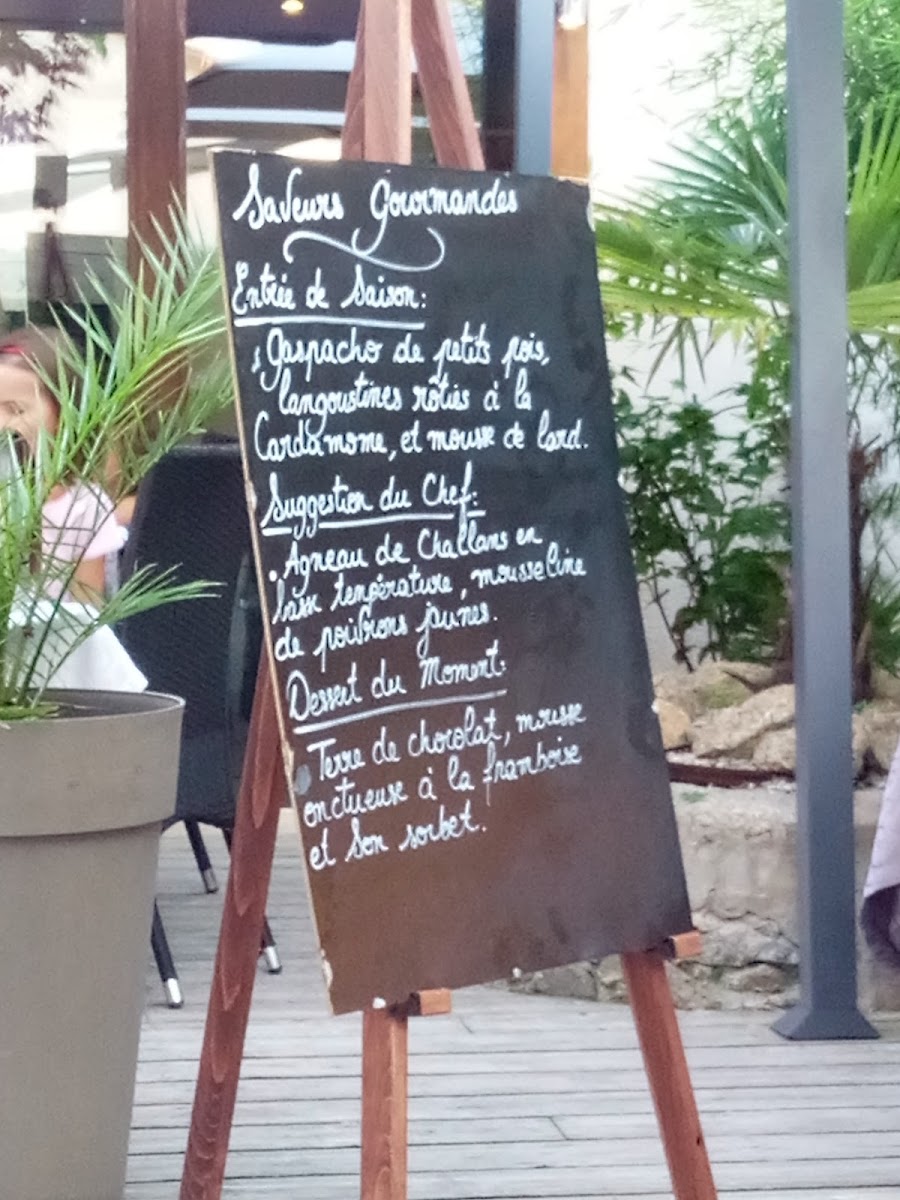 Saveurs Gourmandes
Entrée de Saison:
• Gaspacho de petits pois,
langoustines rôties à la
Cardamome, et mousse de lard.
Suggestion du Chef:
• Agneau de Challans en
basse température, mousseline
de poivrons jaunes.
Dessert du Moment:
• Terre de chocolat, mousse
onctueuse à la framboise
et son sorbet.